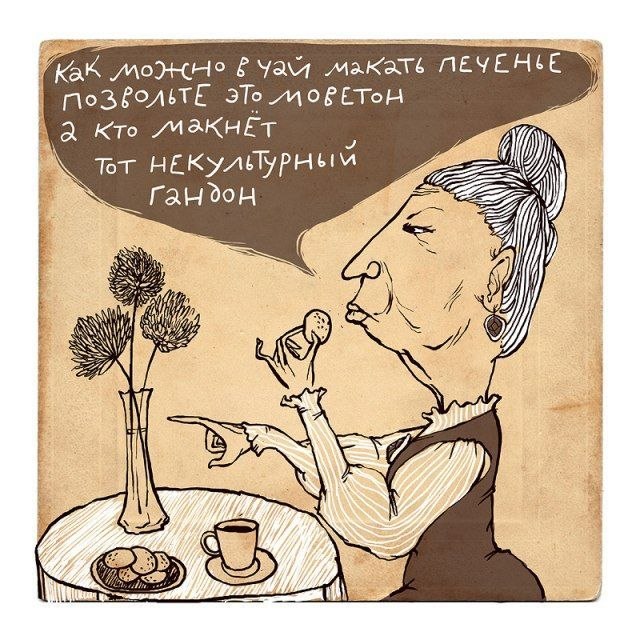 как можно в чай макать печенье
позвольте это моветон
а кто макнёт
тот некультурный
гандон